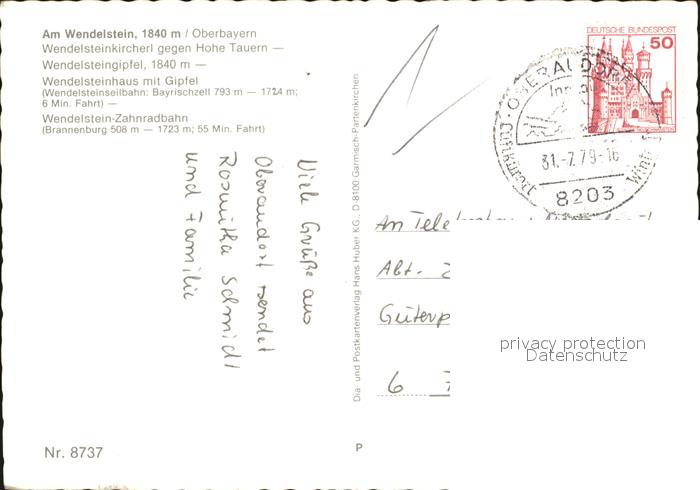 Am Wendelstein, 1840 m / Oberbayern
Wendelsteinkircherl gegen Hohe Tauern —
Wendelsteingipfel, 1840 m —
Wendelsteinhaus mit Gipfel
(Wendelsteinseilbahn: Bayrischzell 793 m — 1724 m;
6 Min. Fahrt) —
Wendelstein-Zahnradbahn
(Brannenburg 508 m — 1723 m; 55 Min. Fahrt)
Viele Grüße aus
Oberaudorf sendet
Roswitha Schmidt
und Familie
Nr. 8737
Dia- und Postkartenverlag Hans Huber KG., D-8100 Garmisch-Partenkirchen
P
DEUTSCHE BUNDESPOST
50
OBERAUDORF
31.-7.79-16
8203
An Tele
Abt.
Güterp
6
privacy protection
Datenschutz